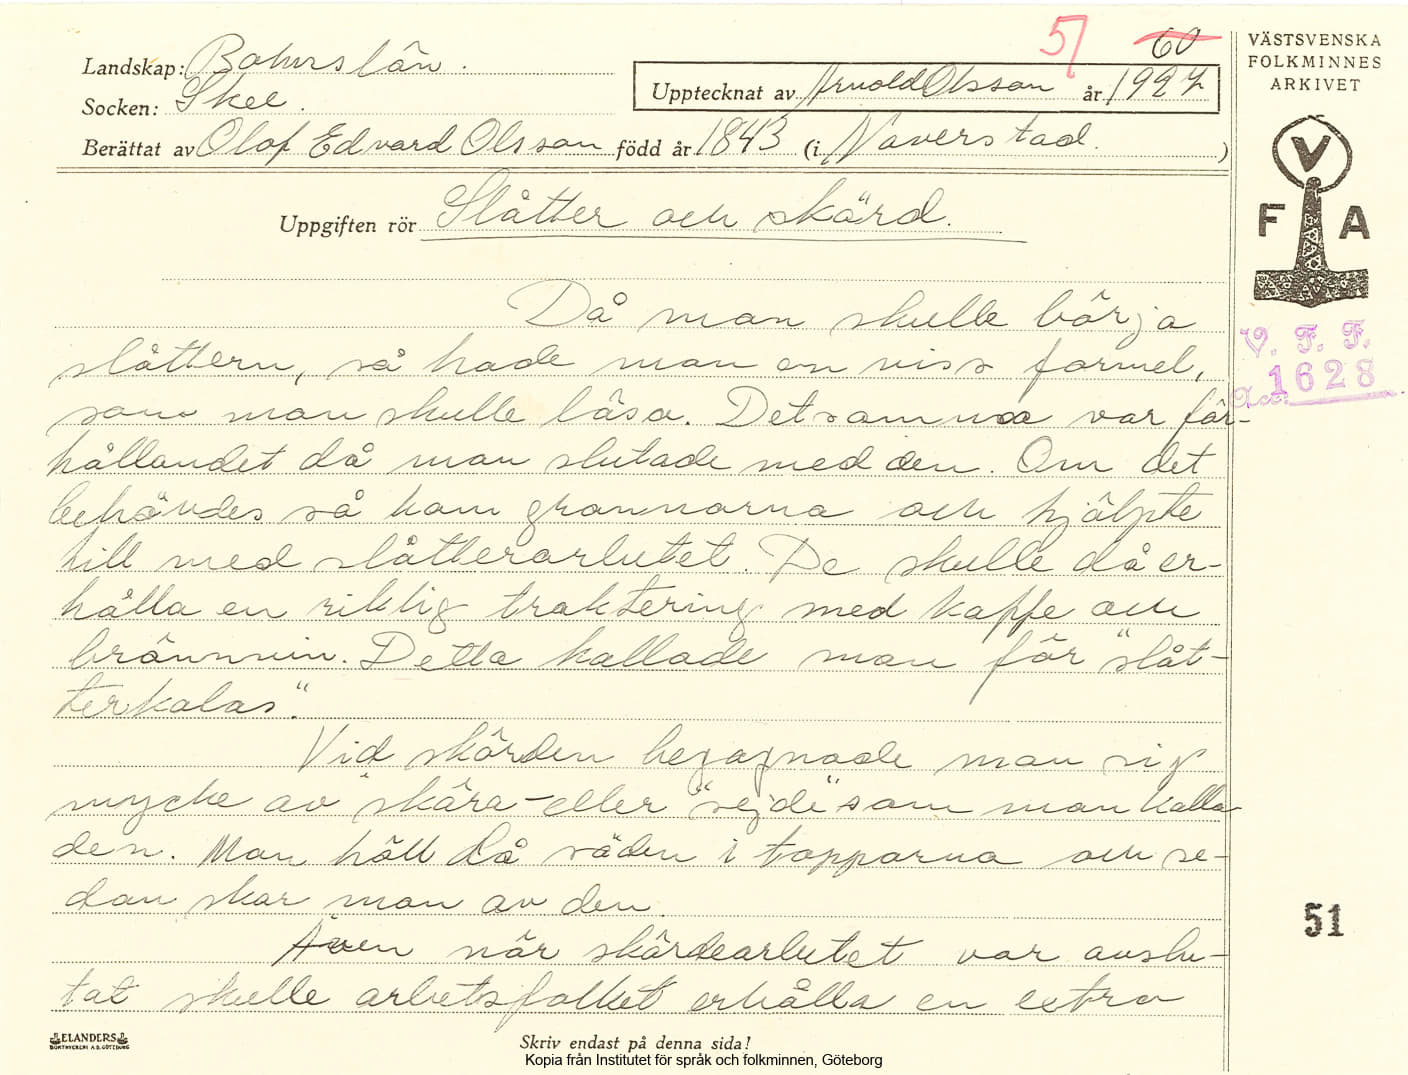 51 60
VÄSTSVENSKA
FOLKMINNES
ARKIVET
Landskap: Bohuslän.
Socken: Skee.
Upptecknat av Arnold Olsson år 1927
Berättat av Olof Edvard Olsson född år 1843 (i Naverstad.)
V
F A
Uppgiften rör Slåtter och skärd.
V. F. F.
Acc. 1628
Då man skulle börja
slåttern, så hade man en viss formel,
som man skulle läsa. Detsamma var för-
hållandet då man slutade med den. Om det
behövdes så kom grannarna och hjälpte
till med slåtterarbetet. De skulle då er-
hålla en riktig traktering med kaffe och
brännvin. Detta kallade man för "slåt-
terkalas".
Vid skörden begagnade man sig
mycke av skära - eller "sejde" som man kalla
den. Man höll då säden i topparna och se-
dan skar man av den.
Även när skördearbetet var avslu-
tat skulle arbetsfolket erhålla en extra
51
ELANDERS
BOKTRYCKERI A.B. GÖTEBORG
Skriv endast på denna sida!
Kopia från Institutet för språk och folkminnen, Göteborg